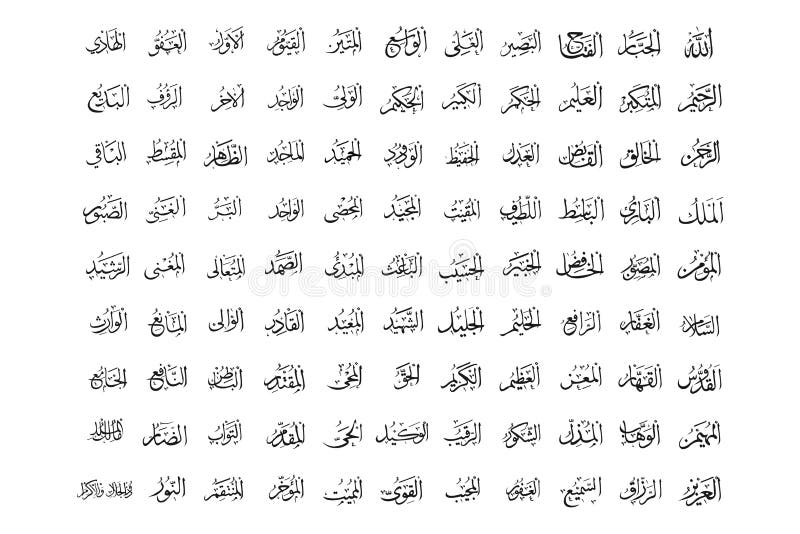 الله الجبار الفتاح البصير العلي الواسع المتين القيوم الأول العفو الهادي
الرحيم المتكبر العليم الحكم الكبير الحكيم الولي الواجد الآخر الرؤوف البديع
الرحمن الخالق القابض العدل الحفيظ الودود الحميد الماجد الظاهر المقسط الباقي
الملك البارئ الباسط اللطيف المقيت المجيد المحصي الواحد البر الغني الصبور
المؤمن المصور الخافض الخبير الحسيب الباعث المبدئ الصمد المتعالي المغني الرشيد
السلام الغفار الرافع الحليم الجليل الشهيد المعيد القادر الوالي المانع الوارث
القدوس القهار المعز العظيم الكريم الحق المحي المقتدر الباطن النافع الجامع
المهيمن الوهاب المذل الشكور الرقيب الوكيل الحي المقدم التواب الضار
العزيز الرزاق السميع الغفور المجيب القوي المميت المؤخر المنتقم النور ذو الجلال والإكرام